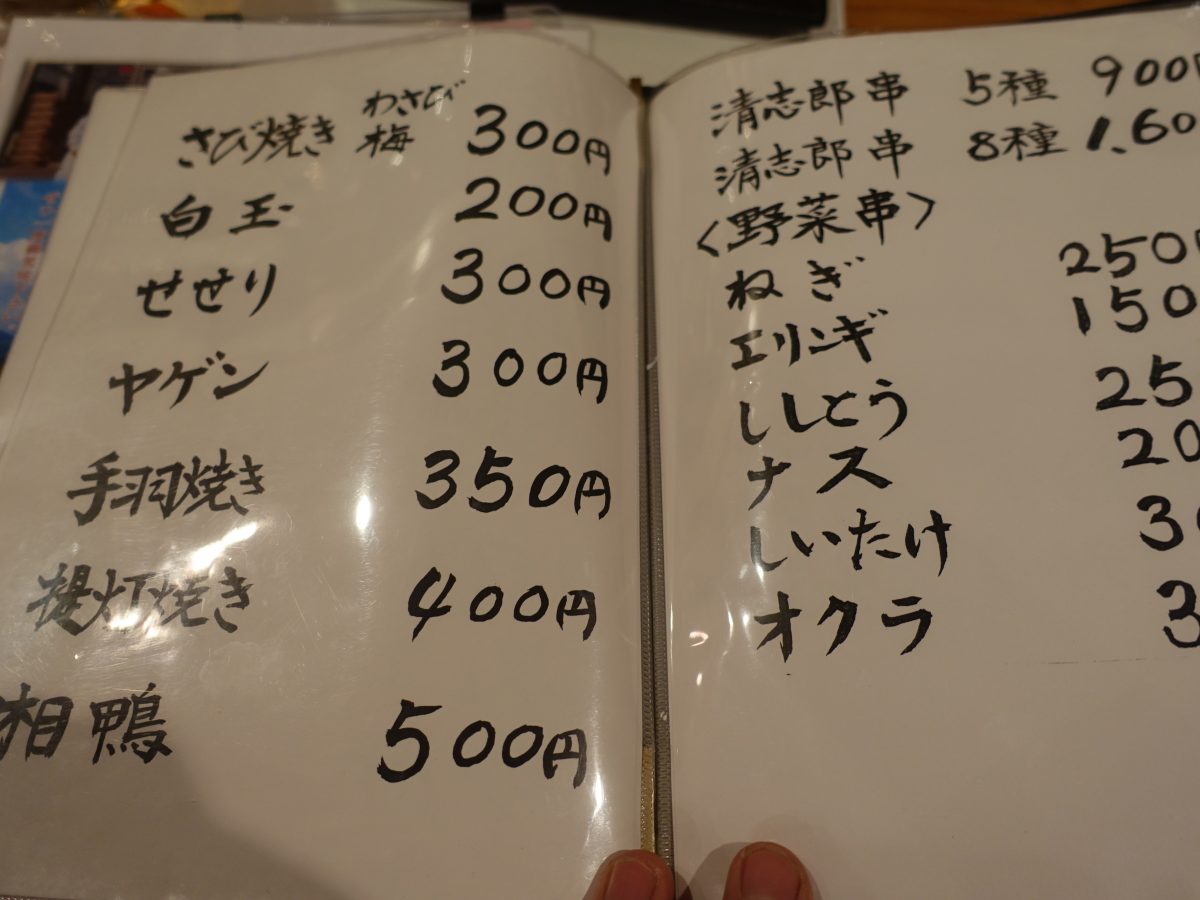 さび焼き わさび 梅 300円
白玉 200円
せせり 300円
ヤゲン 300円
手羽焼き 350円
提灯焼き 400円
相鴨 500円
清志郎串 5種 900円
清志郎串 8種 1.60
〈野菜串〉
ねぎ 250
エリンギ 150
ししとう 25
ナス 20
しいたけ 30
オクラ 3